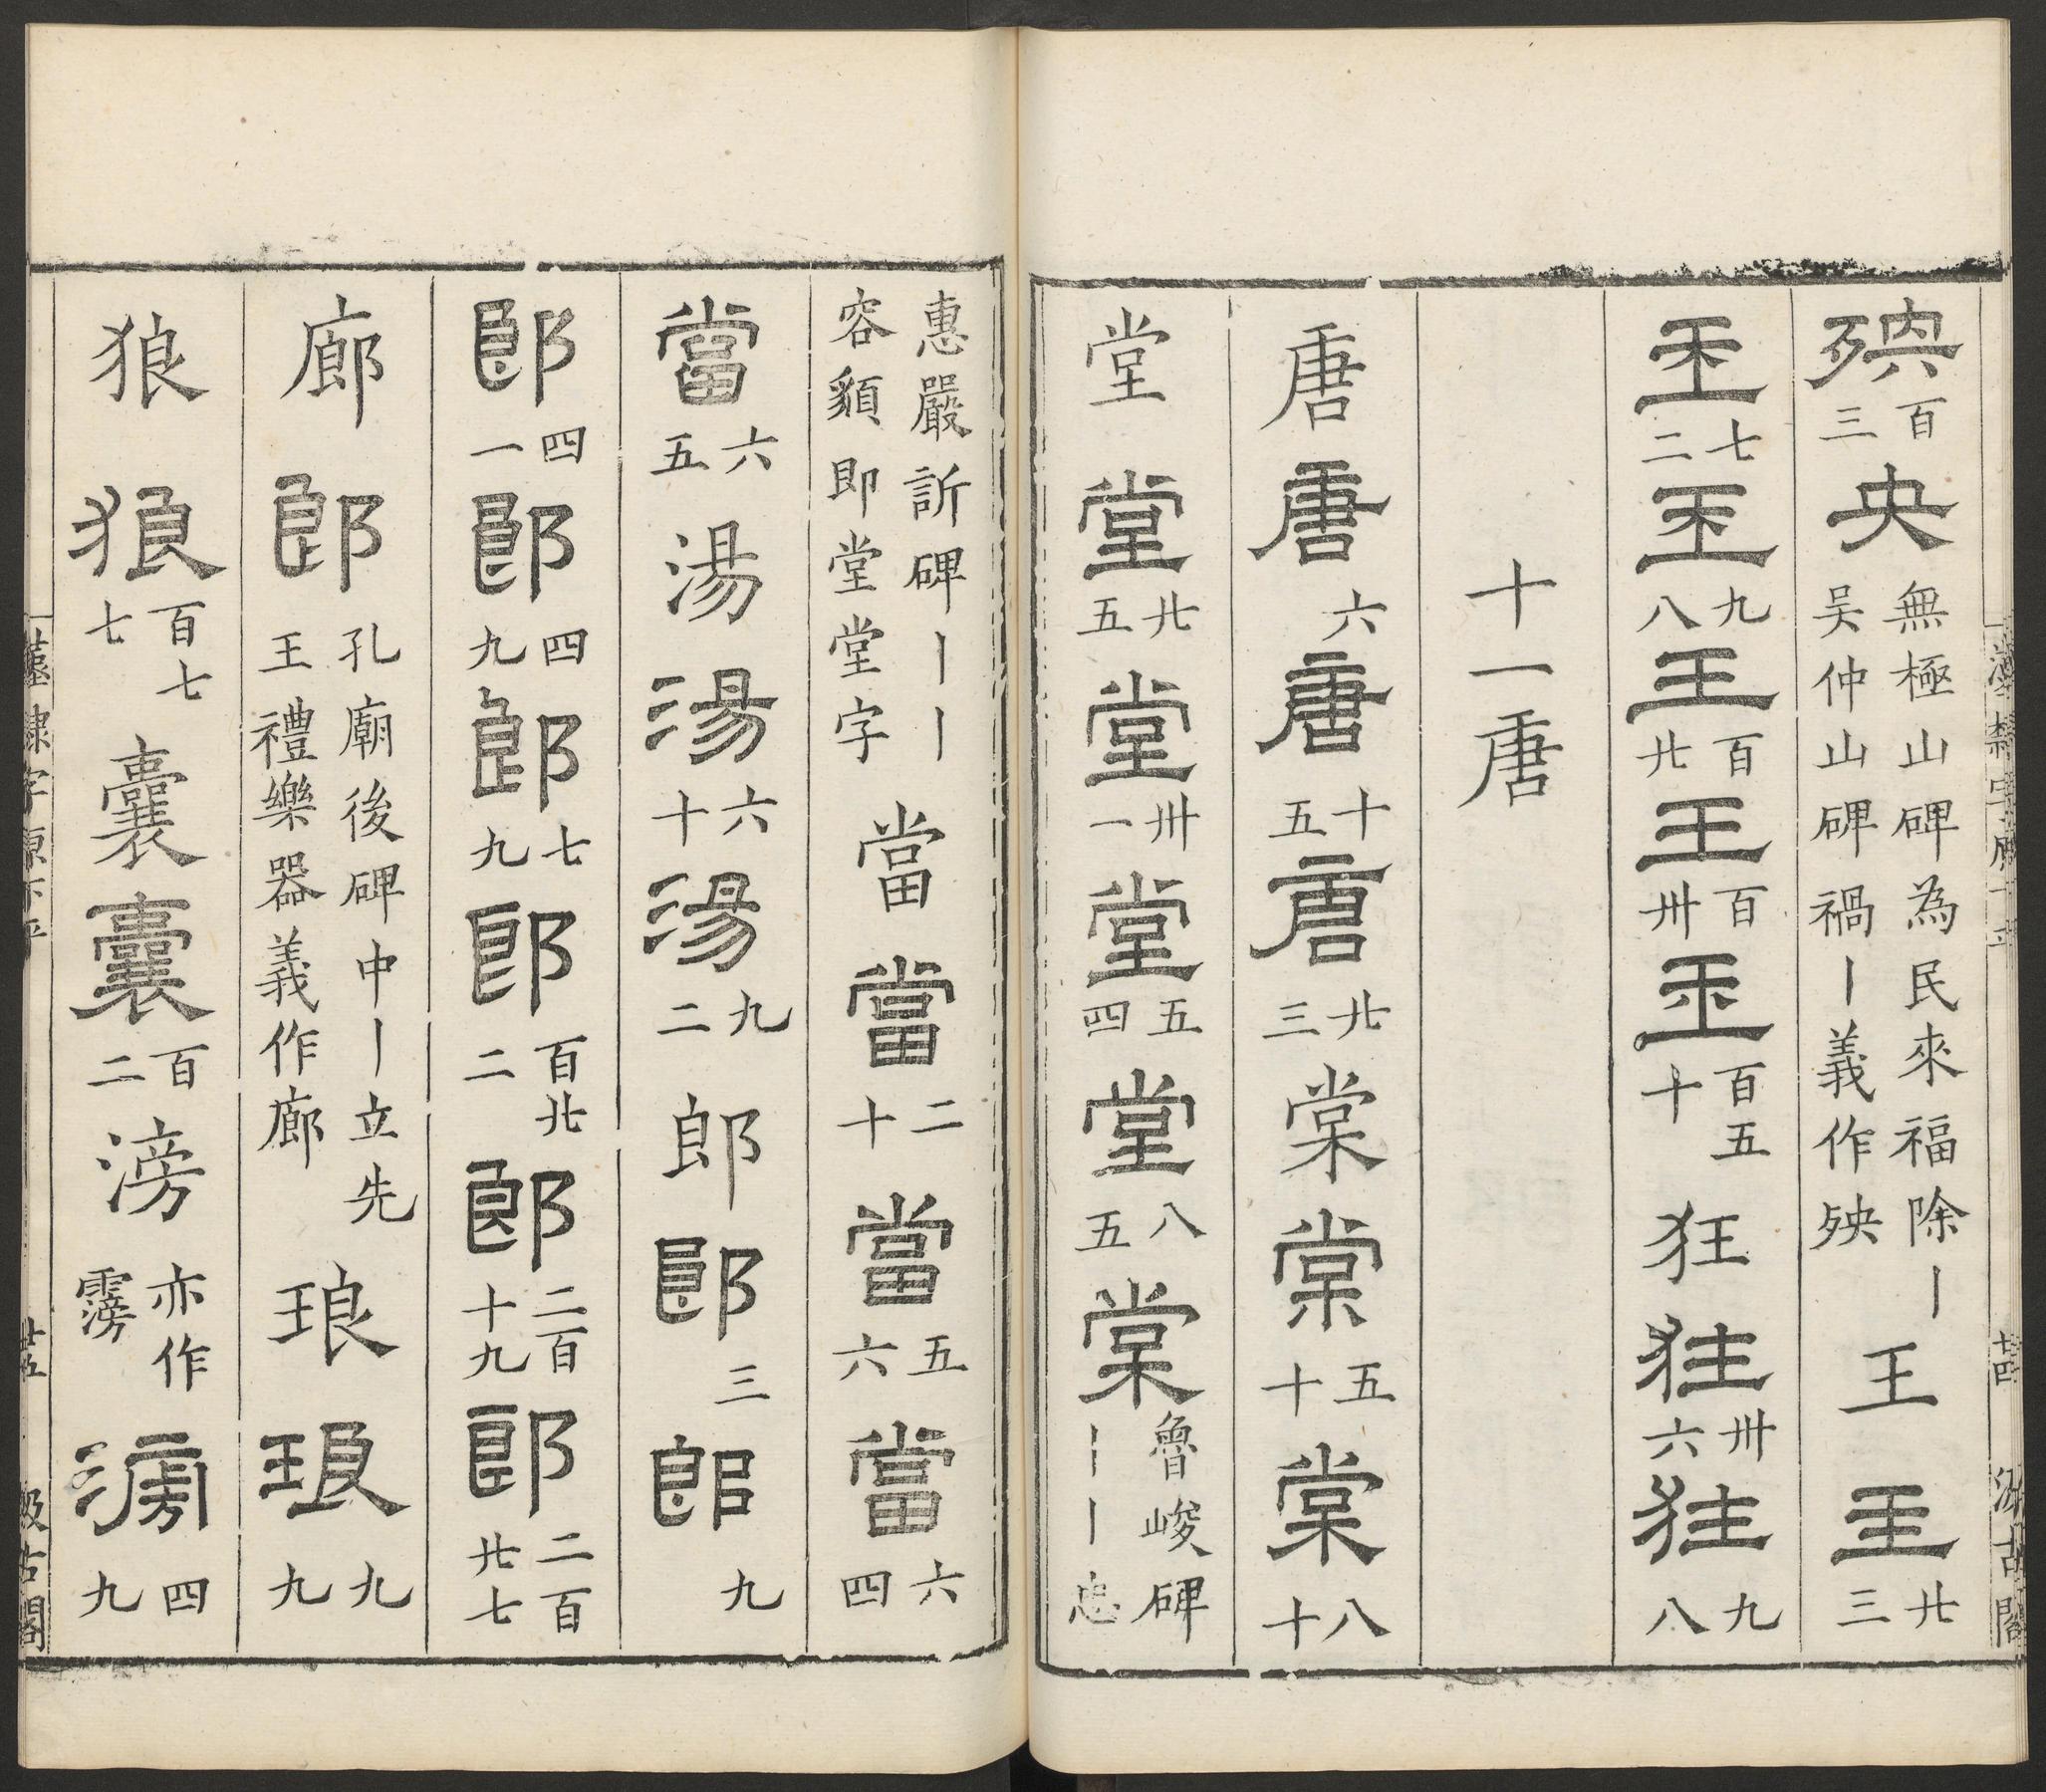 殃百三央無極山碑為民來福除丨吴仲山碑禍丨義作殃王王廿三
王七二王九八王百廿王百卅王百五十狂狂卅六狂九八
十一唐
唐唐六唐十五唐廿三棠棠五十棠八十
堂堂廿五堂卅一堂五四堂八五棠魯峻碑丨丨忠
惠嚴訢碑丨丨容貌即堂堂字當當二十當五六當六四
當六五湯湯六十湯九二郎郎三郎九
郎四一郎四九郎七九郎百廿二郎二百十九郎二百廿七
廊郎孔廟後碑中丨立先王禮樂器義作廊琅琅九九
狼狼百七七囊囊百二滂亦作霶滂四九
漢隸字源下平
十四
汲古閣
隸字源下平
十五
汲古閣